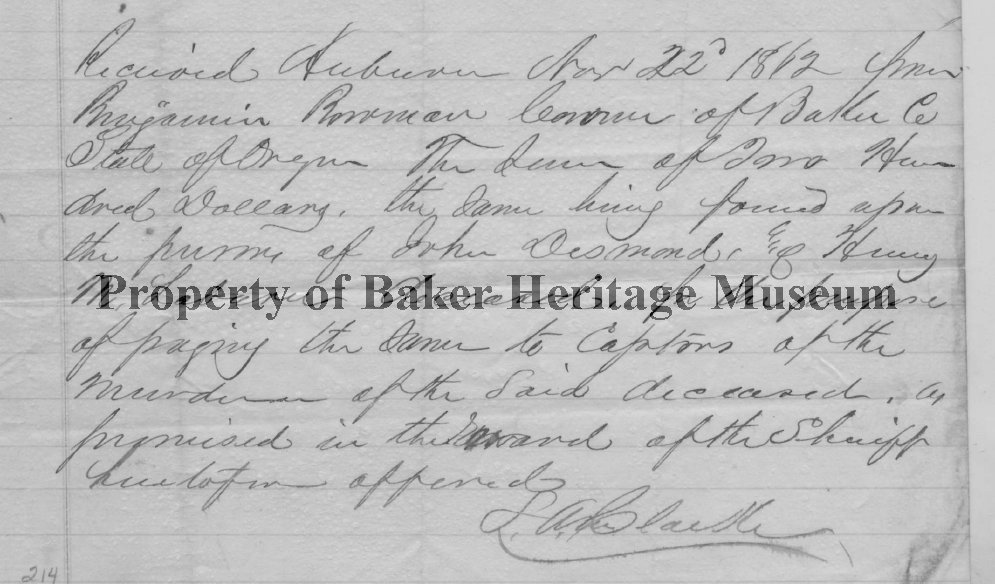 Received Auburn Nov 22d 1862 from
Benjamin Bowman Coroner of Baker Co
State of Oregon The Sum of Two Hun
dred Dollars. the same being found upon
the persons of John Desmond, & Henry
M. deceased. for the purpose
Property of Baker Heritage Museum
of paying the same to Captors of the
Murderer of the Said deceased, as
promised in the reward of the Sheriff
heretofore offered
214